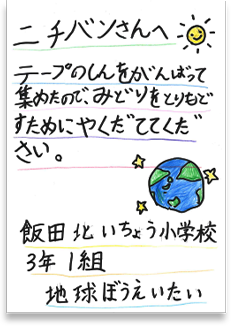 ニチバンさんへ
テープのしんをがんばって
集めたので、みどりをとりもど
すためにやくだててくだ
さい。
飯田北いちょう小学校
3年1組
地球ぼうえいたい